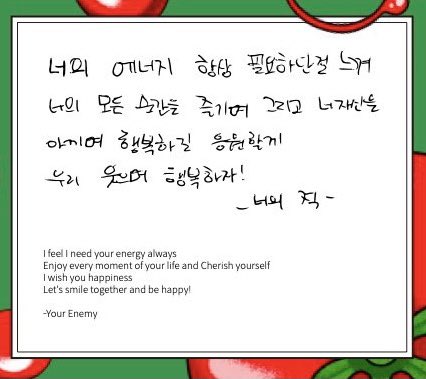 너의 에너지 항상 필요하단걸 느껴
너의 모든 순간을 즐기며 그리고 너 자신을
아끼며 행복하길 응원할게
우리 웃으며 행복하자!
- 너의 적 -
I feel I need your energy always
Enjoy every moment of your life and Cherish yourself
I wish you happiness
Let's smile together and be happy!
-Your Enemy